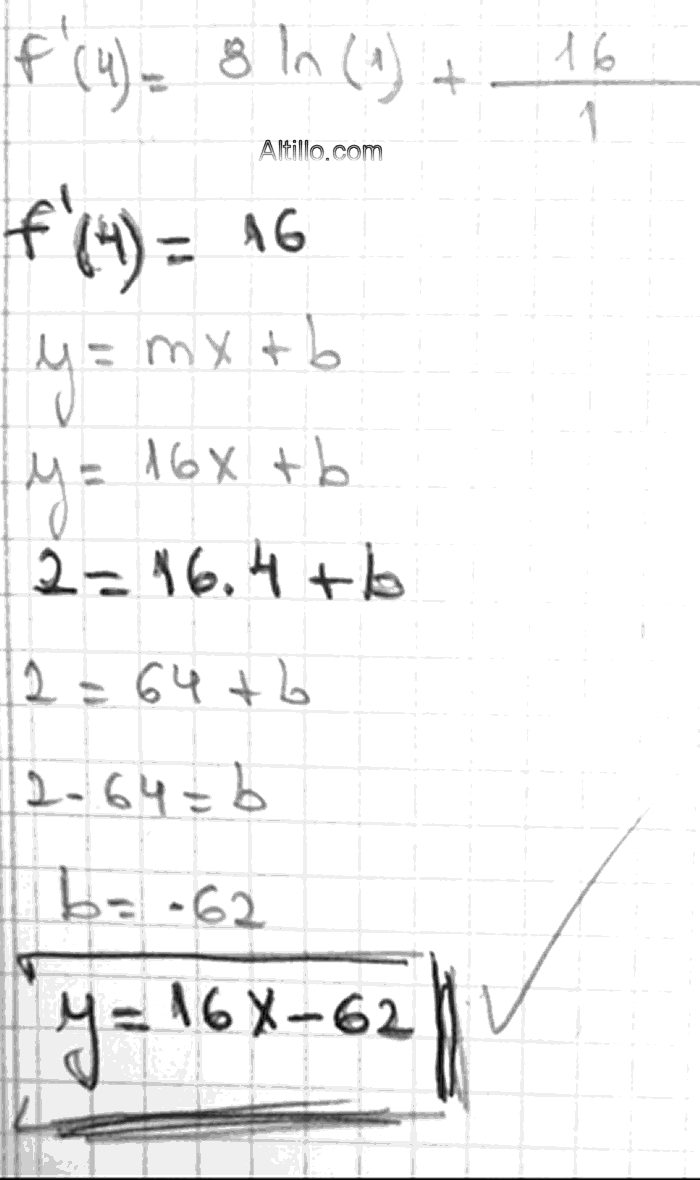 f'(4) = 8 ln (1) + 16/1
Altillo.com
f'(4) = 16
y = mx + b
y = 16x + b
2 = 16.4 + b
2 = 64 + b
2 - 64 = b
b = -62
y = 16x - 62